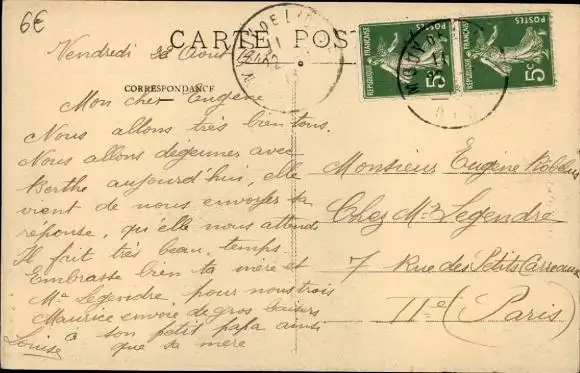 6€
CARTE POS
CORRESPONDANCE
RÉPUBLIQUE FRANÇAISE
POSTES
5c
RÉPUBLIQUE FRANÇAISE
POSTES
5c
MOUY DE L'OI
MOUY DE
Vendredi 28 Aout
Mon cher Eugène
Nous allons très bien tous.
Nous allons dejeuner avec
Berthe aujourd'hui, elle
vient de nous envoyer sa
réponse, qu'elle nous attend
Il fait très beau temps
Embrasse bien ta mère et
Me Legendre, pour nous trois
Maurice envoie de gros baisers
à son petit papa ainsi
que sa mère
Louise
Monsieur Eugène
Chez Mr Legendre
7 Rue des Petits Carreaux
IIe (Paris)